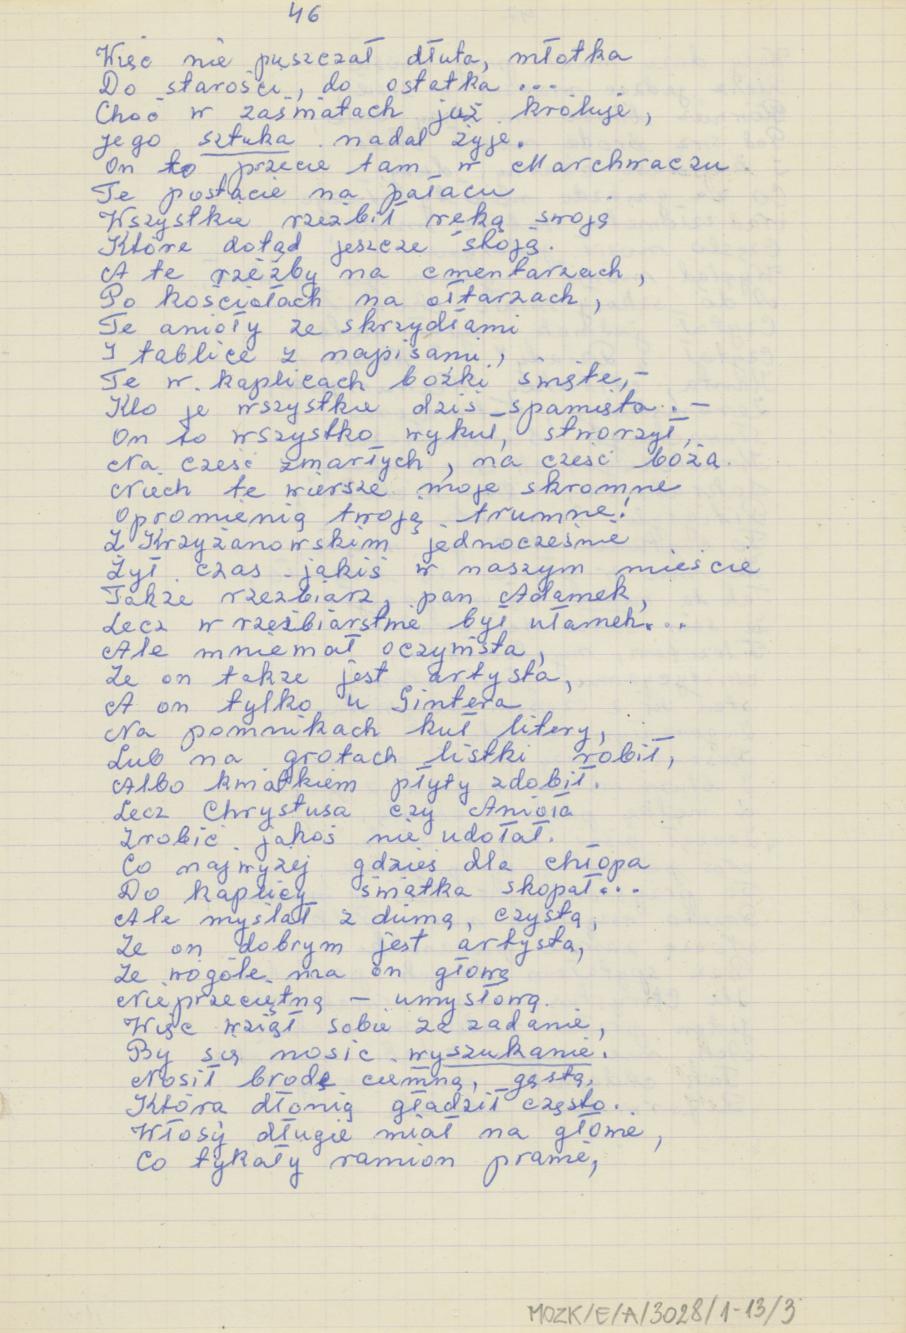 46
Więc nie puszczał dłuta, młotka
Do starości, do ostatka ...
Choć w zaświatach już króluje,
Jego sztuka nadal żyje.
On to przecie tam w Marchwaczu
Te postacie na pałacu
Wszystkie rzeźbił ręką swoją
Które dotąd jeszcze stoją.
A te rzeźby na cmentarzach,
Po kościołach na ołtarzach,
Te anioły ze skrzydłami
I tablice z napisami,
Te w kaplicach bożki święte,-
Kto je wszystkie dziś spamięta. -
On to wszystko wykuł, stworzył,
Na cześć zmarłych, na cześć bożą.
Niech te wiersze moje skromne
Opromienią twoją trumnę!
Z Krzyżanowskim jednocześnie
Żył czas jakiś w naszym mieście
Także rzeźbiarz, pan Adamek,
Lecz w rzeźbiarstwie był ułamek...
Ale mniemał oczywista,
Że on także jest artysta,
A on tylko u Gintera
Na pomnikach kuł litery,
Lub na grotach listki robił,
Albo kwiatkiem płyty zdobił.
Lecz Chrystusa czy Anioła
Zrobić jakoś nie udołał.
Co najwyżej gdzieś dla chłopa
Do kaplicy świątka skopał...
Ale myślał z dumą, czystą,
Że on dobrym jest artystą,
Że wogóle ma on głowę
Nieprzeciętną – umysłową.
Więc wziął sobie za zadanie,
By się nosić wyszukanie.
Nosił brodę ciemną, gęstą,
Którą dłonią gładził często.
Włosy długie miał na głowie,
Co tykały ramion prawie,
MOZK/E/A/3028/1-13/3